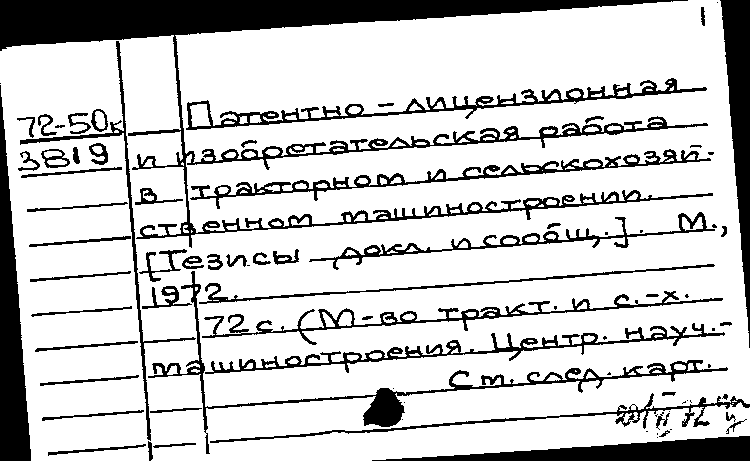 1
72-50к Патентно-лицензионная
3819 и изобретательская работа
в тракторном и сельскохозяй-
ственном машиностроении.
[Тезисы докл. и сообщ.]. М.,
1972.
72 с. (М-во тракт. и с.-х.
машиностроения. Центр. науч.-
См. след. карт.